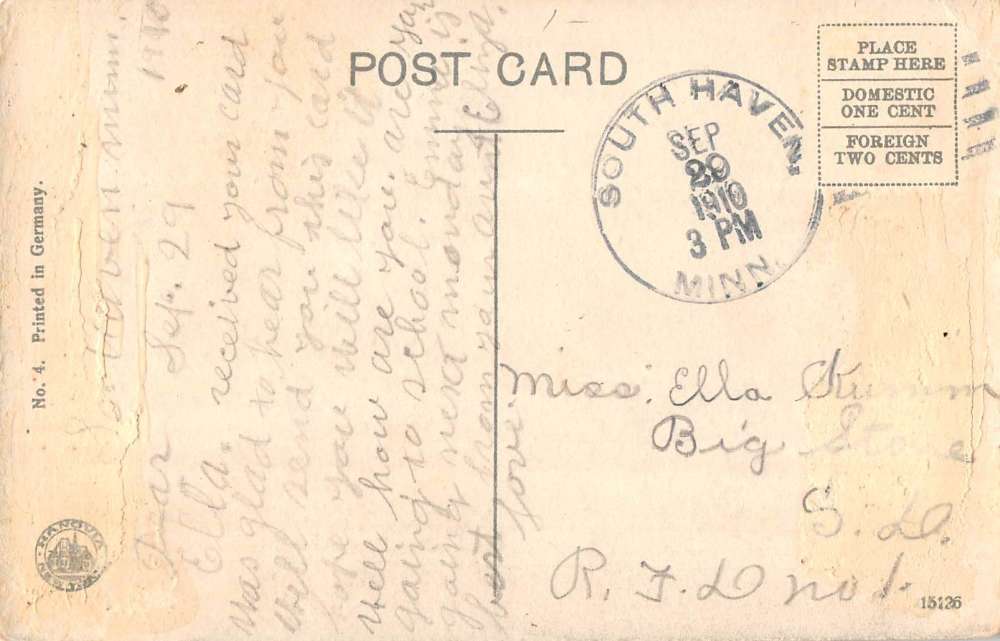 POST CARD
PLACE
STAMP HERE
DOMESTIC
ONE CENT
FOREIGN
TWO CENTS
SOUTH HAVEN.
SEP
29
1910
3 PM
MINN.
No. 4. Printed in Germany.
HANOVIA
Haven minn.
1910
Sep. 29
Dear
Ella. received your card
was glad to hear from you
Well send you this card
hope you will like it
well how are you. are you
going to school. is
going next monday
best from your aunt
love.
Miss. Ella
Big Stone
S. D.
R. F. D no 1.
15126